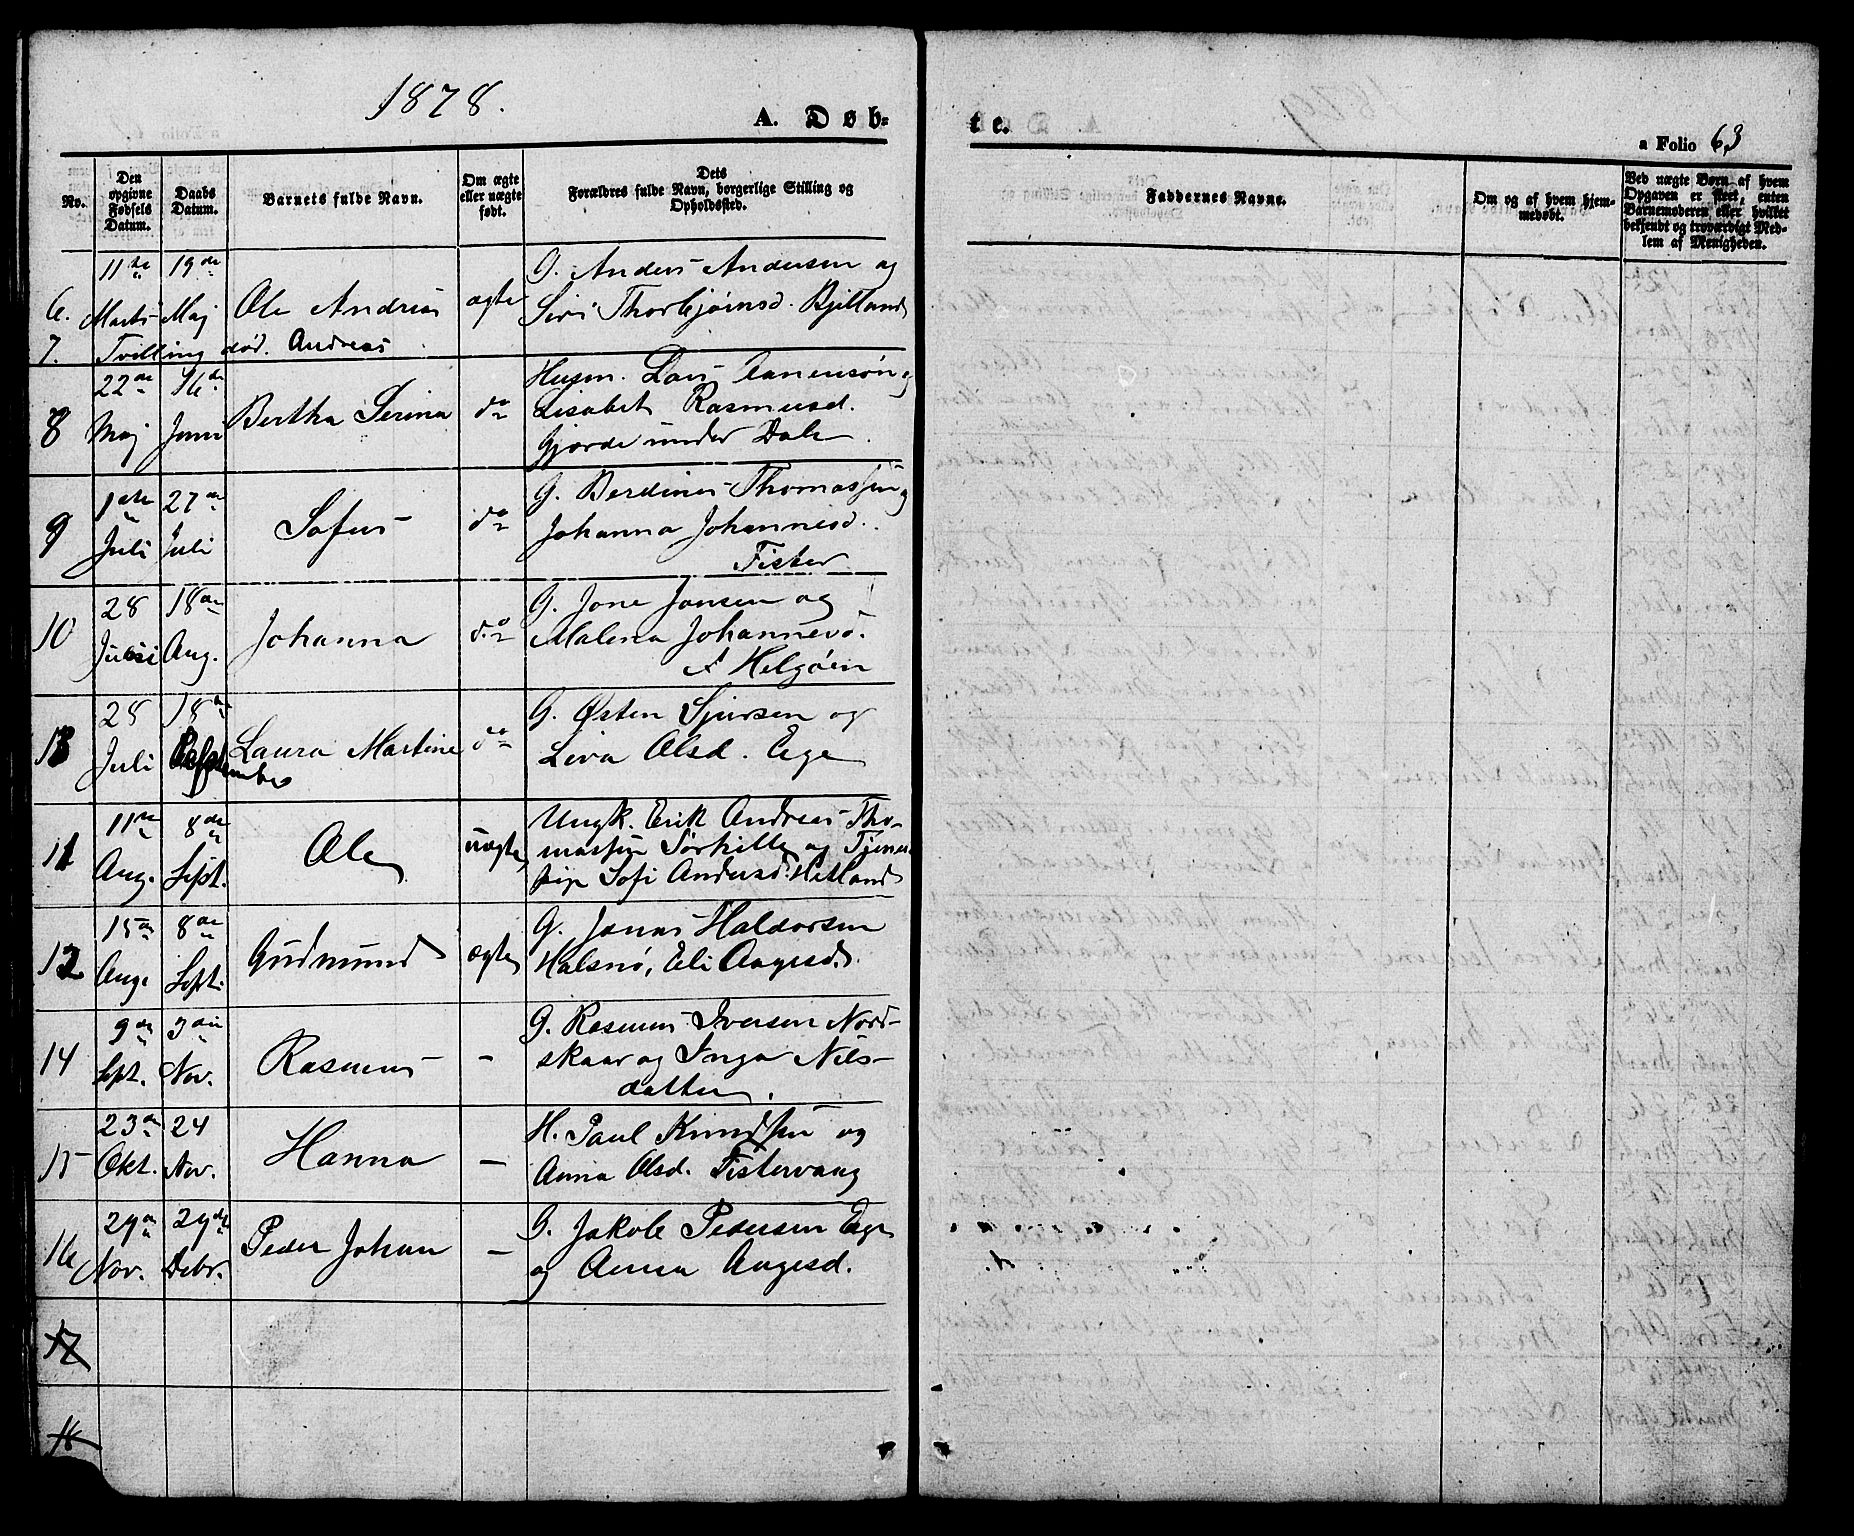 1878.
A. Døb=
te.
a Folio 63
No.
Den opgivne Fødsels Datum.
Daabs Datum.
Barnets fulde Navn.
Om ægte eller uægte født.
Dets Forældres fulde Navn, borgerlige Stilling og Opholdssted.
Faddernes Navne.
Om og af hvem hjemmedøbt.
Ved uægte Børn af hvem Opgaven er skeet, enten Barnemoderen eller hvilket bekjendt og troværdigt Medlem af Menigheden.
6. 11te Marts 19de Maj Ole Andreas ægte G. Anders Andersen og
Siri Thorbjørnsd. Bjelland
7. Tvilling død. Andreas
8 22de Maj 16de Juni Bertha Serina do Husm. Lars Aanensøn og
Lisabet Rasmusd.
Gjorde under Dale
9 1ste Juli 27de Juli Sofus do G. Berdines Thomassen og
Johanna Johannesd.
Fister
10 28 Juli 18de Aug. Johanna do G. Jone Jonsen og
Malena Johannesd.
Helgøen
13 28 Juli 18de September Laura Martine do G. Østen Sjursen og
Liva Olsd. Ege
11 11te Aug. 8de Sept. Ole uægte Ungk. Erik Andreas Tho-
massen Sørskille og Tjenes-
pige Sofi Andersd. Hetland
12 15de Aug. 8de Sept. Gudmund ægte G. Jonas Haldorsen
Halsnø, Eli Aagesd.
14 9de Sept. 3die Nov. Rasmus - G. Rasmus Iversen Nord-
skaar og Inga Nils-
datter.
15 23de Okt. 24 Nov. Hanna - H. Paul Knudsen og
Anna Olsd. Fistervaag
16 29de Nov. 29de Debr. Peder Johan - G. Jakob Pedersen Ege
og Anna Aagesd.
17
18